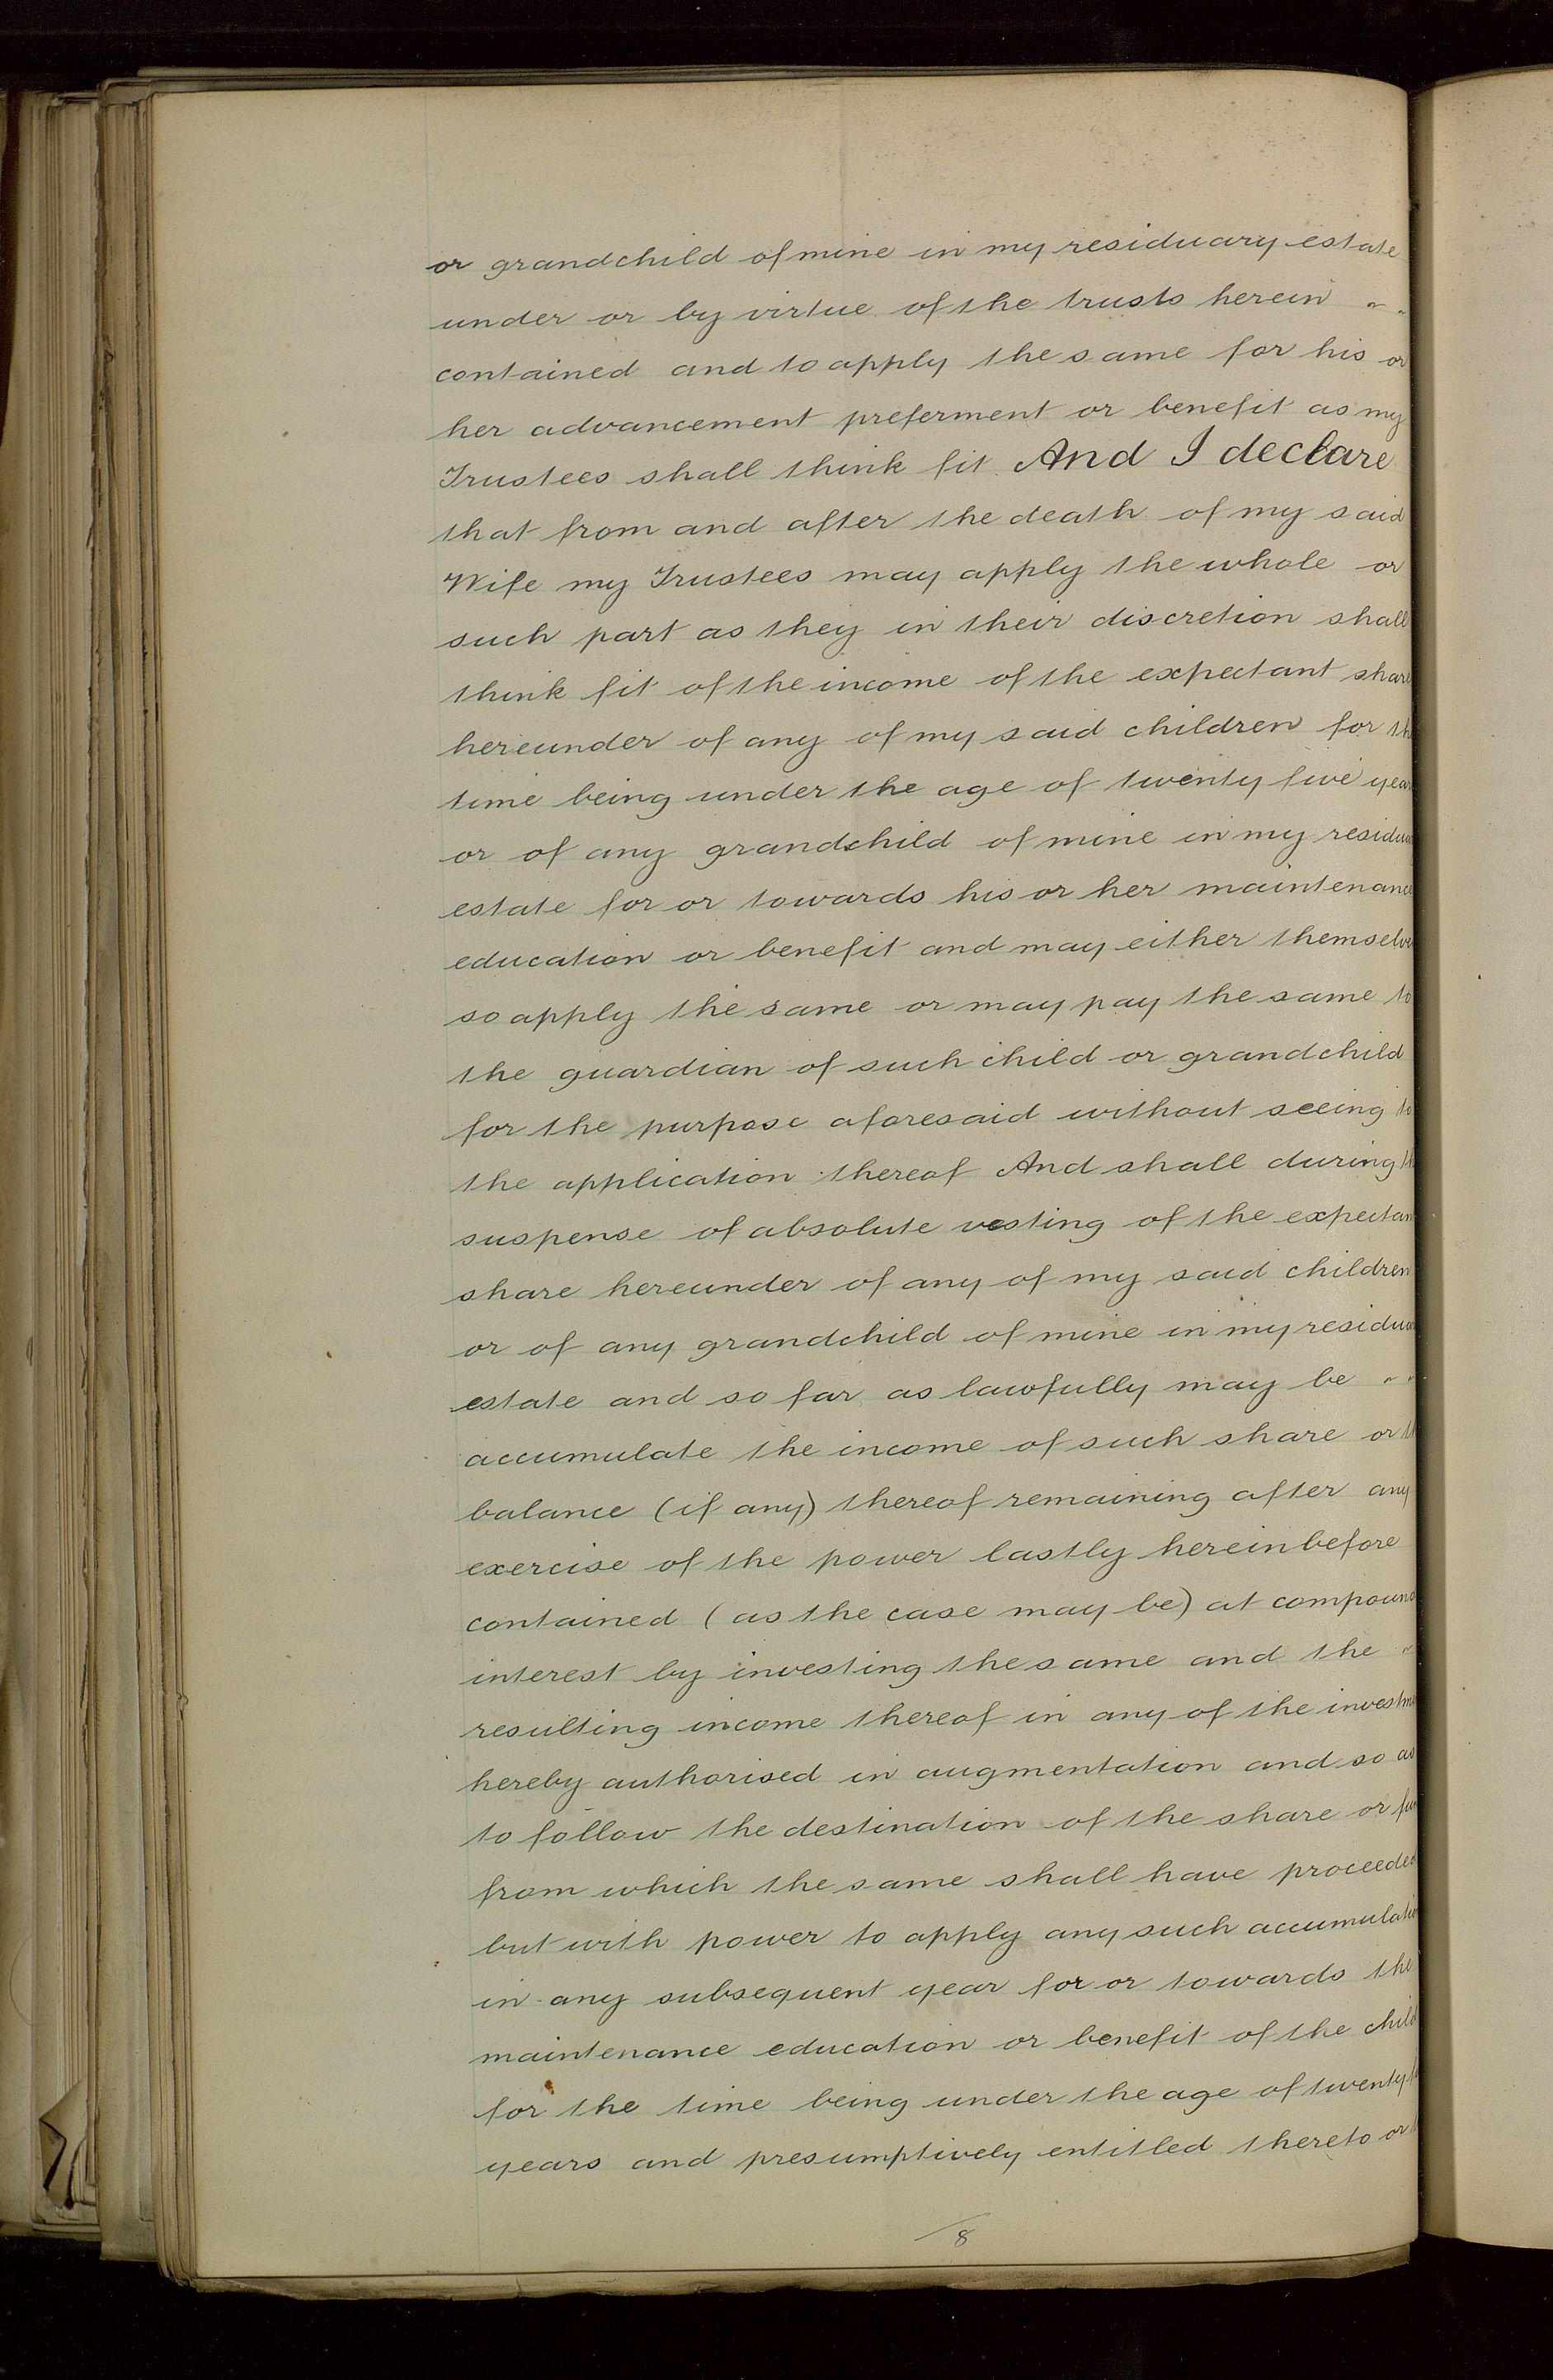 or grandchild of mine in my residuary estate
under or by virtue of the trusts herein " "
contained and to apply the same for his or
her advancement preferment or benefit as my
Trustees shall think fit And I declare
that from and after the death of my said
Wife my Trustees may apply the whole or
such part as they in their discretion shall
think fit of the income of the expectant share
hereunder of any of my said children for th
time being under the age of twenty five year
or of any grandchild of mine in my residua
estate for or towards his or her maintenance
education or benefit and may either themselve
so apply the same or may pay the same to
the guardian of such child or grandchild
for the purpose aforesaid without seeing to
the application thereof And shall during th
suspense of absolute vesting of the expectan
share hereunder of any of my said children
or of any grandchild of mine in my residua
estate and so far as lawfully may be " "
accumulate the income of such share or th
balance (if any) thereof remaining after any
exercise of the power lastly hereinbefore
contained (as the case may be) at compound
interest by investing the same and the "
resulting income thereof in any of the investme
hereby authorised in augmentation and so as
to follow the destination of the share or fun
from which the same shall have proceeded
but with power to apply any such accumulatio
in any subsequent year for or towards the
maintenance education or benefit of the child
for the time being under the age of twenty
years and presumptively entitled thereto or
8